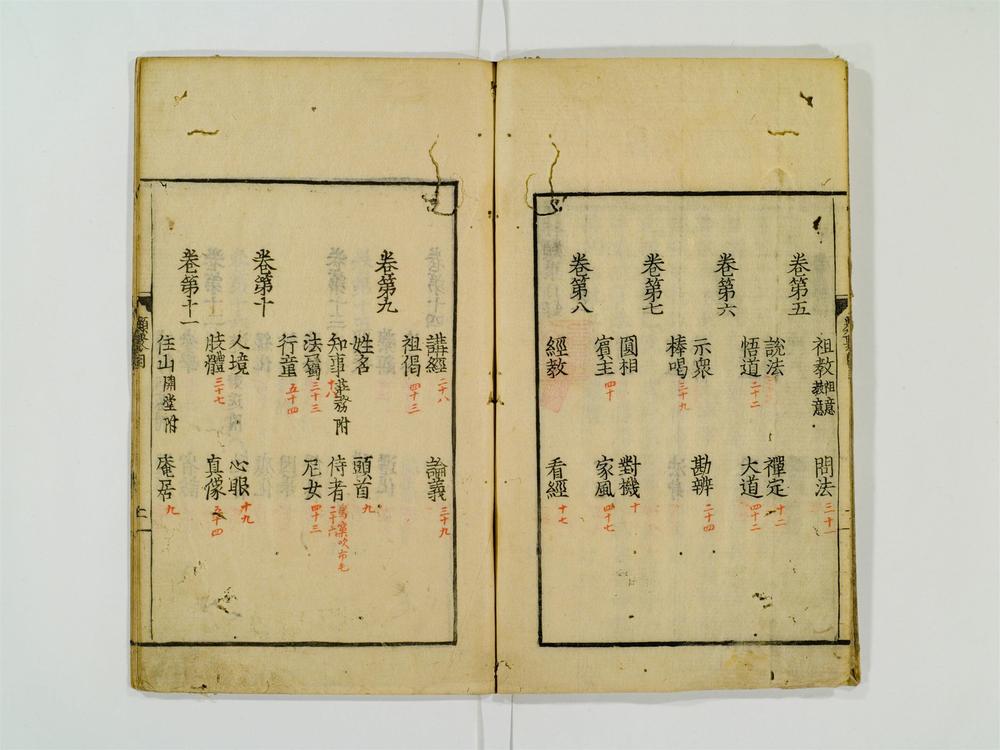 卷第五
祖教 祖意教意 問法 三十一
説法 禪定 十二
悟道 二十二 大道 四十二
卷第六
示衆 勘辨 二十四
棒喝 三十九
卷第七
圓相 對機 十
賓主 四十 家風 四十七
卷第八
經教 看經 十七
講經 二十八 論義 三十九
祖偈 四十三
卷第九
姓名 頭首 九
知事 蒞務附 十八 侍者 二十六 鳥窠吹布毛
法屬 三十三 尼女 四十三
行童 五十四
卷第十
人境 心眼 十九
肢體 三十七 真像 五十四
卷第十一
住山 開堂附 庵居 九